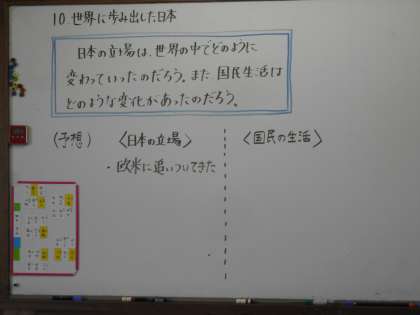 10 世界に歩み出した日本
日本の立場は、世界の中でどのように
変わっていったのだろう。また国民生活は
どのような変化があったのだろう。
(予想) 〈日本の立場〉 〈国民の生活〉
・欧米に追いついてきた